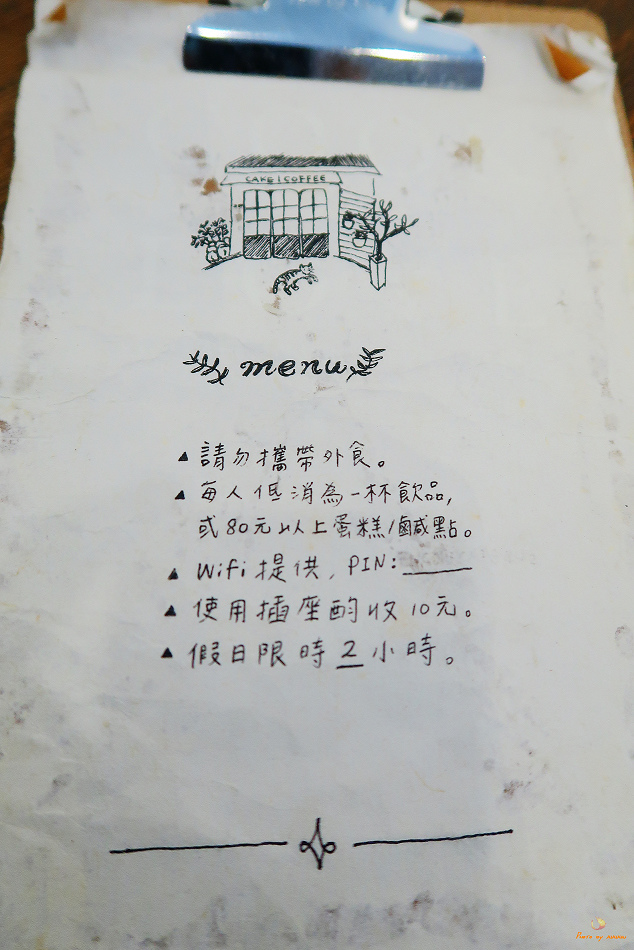 CAKE & COFFEE
menu
▲ 請勿攜帶外食。
▲ 每人低消為一杯飲品,
或80元以上蛋糕/鹹點。
▲ Wifi提供, PIN:______
▲ 使用插座酌收10元。
▲ 假日限時2小時。